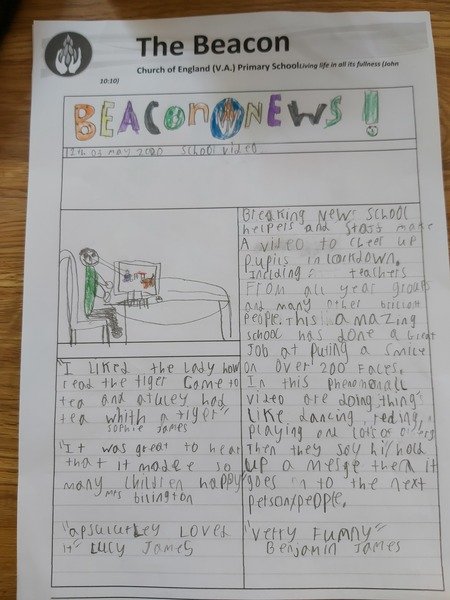 The Beacon
Church of England (V.A.) Primary School Living life in all its fullness (John
10:10)
BEACON NEWS!
12th of may 2020 school video
"I liked the lady how
read the tiger came to
tea and
had
tea whith a tiger"
Sophie James
"It was great to hear
that it made so
many children happy"
mrs bilington
"apsulutley loved
it" Lucy James
Breaking news school
helpers and staff make
A video to cheer up
pupils in lockdown.
Including: teachers
From all year groups
and many other brilliant
people. This amazing
school has done a Great
Job at puting a smile
on over 200 faces.
In this phenomenall
video are doing things
like dancing, reding,
playing and lots of
Then they say hi/hold
up a messge then it
goes on to the next
person/people.
"verry Funny"
Benjamin James